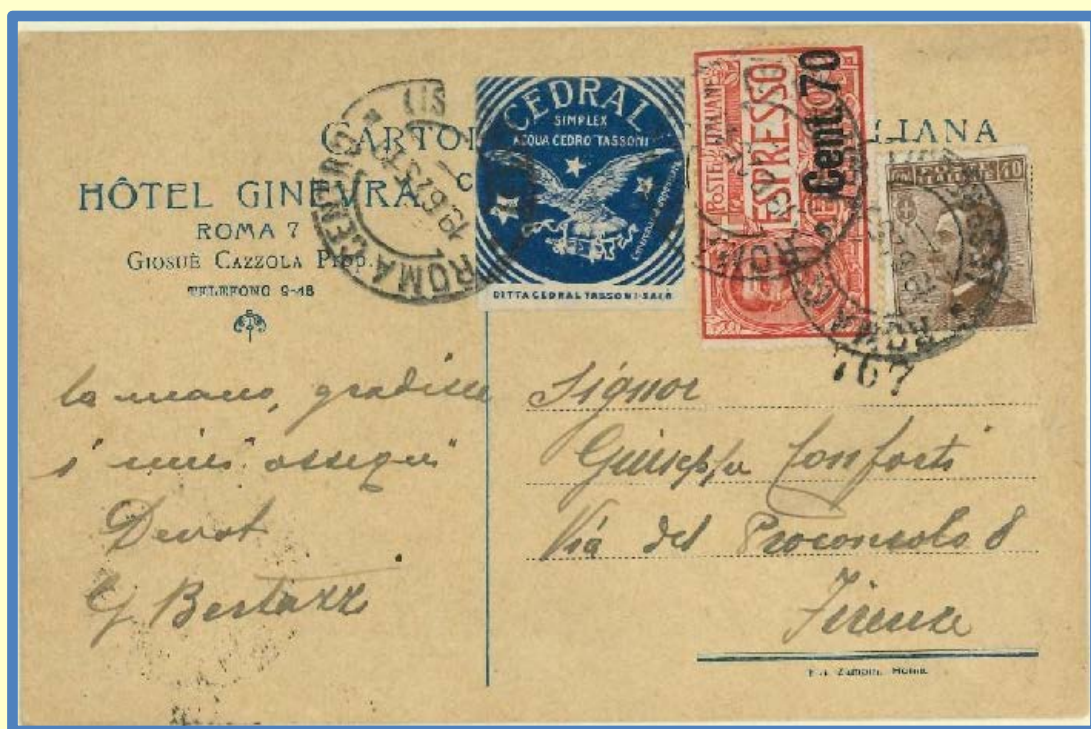 CARTOL LIANA
HÔTEL GINEVRA
ROMA 7
GIOSUÈ CAZZOLA Prop.
TELEFONO 9-48
CEDRAL
SIMPLEX
ACQUA CEDRO TASSONI
DITTA CEDRAL TASSONI-SALÒ
POSTE ITALIANE
ESPRESSO
Cent. 70
ROMA CENTRO
ROMA
167
la mano, gradisca
i miei ossequi
Devot
G Bertazzi
Signor
Giuseppe Conforti
Via del Proconsolo 8
Firenze